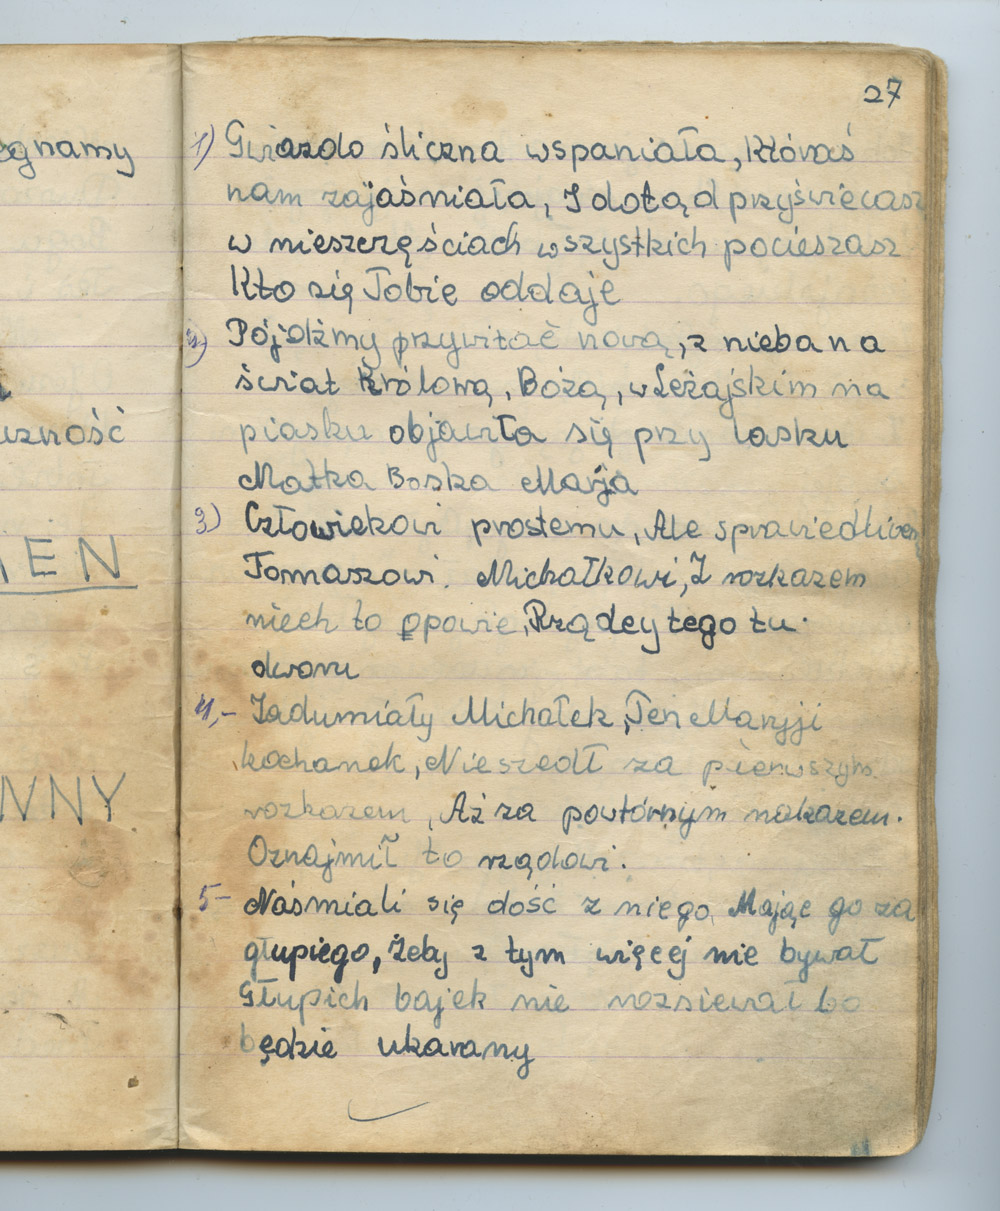 27
egnamy
uzność
MEN
WNY
1) Gwiazdo śliczna wspaniała, Któraś
nam zajaśniała, I dotąd przyświecasz
w nieszczęściach wszystkich pocieszasz
Kto się Tobie oddaje
2) Pójdźmy przywitać nową, z nieba na
świat Królową, Bożą, w Leżajskim na
piasku objawiła się przy lasku
Matka Boska Maryja
3) Człowiekowi prostemu, Ale sprawiedliwemu
Tomaszowi. Michałkowi, I rozkazem
niech to opowie, Rządcy tego tu.
dworu
4,- Zadumiały Michałek, Ten Maryji
kochanek, Nie szedł za pierwszym
rozkazem, Aż za powtórnym nakazem.
Oznajmił to rządowi.
5- Naśmiali się dość z niego, Mając go za
głupiego, żeby z tym więcej nie bywał
Głupich bajek nie rozsiewał bo
będzie ukarany